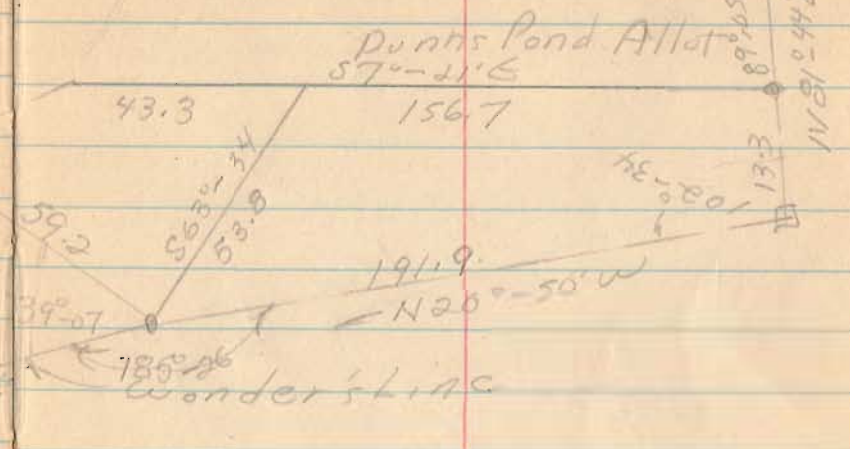 Dunn's Pond Allot
S7°-21'E
43.3
156.7
89°-05
N81°-44
13.3
S63°-34
53.8
102°-34
59.2
191.9
N20°-50'W
39°-07
Wonder's Line